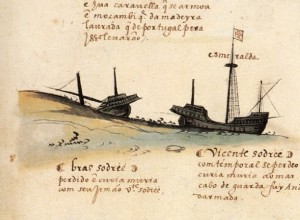 E hua caravella q̃ se armou
e moçambiq̃ da madeyra
laurada q̃ de portugal pera
isso levarão.
esmeralda.
bras sodré
perdido e curia muria
com seu irmão vte sodré
Vicente sodre
com temporal se perdeo
curia muria ao mar
cabo de guarda fuy
darmada.